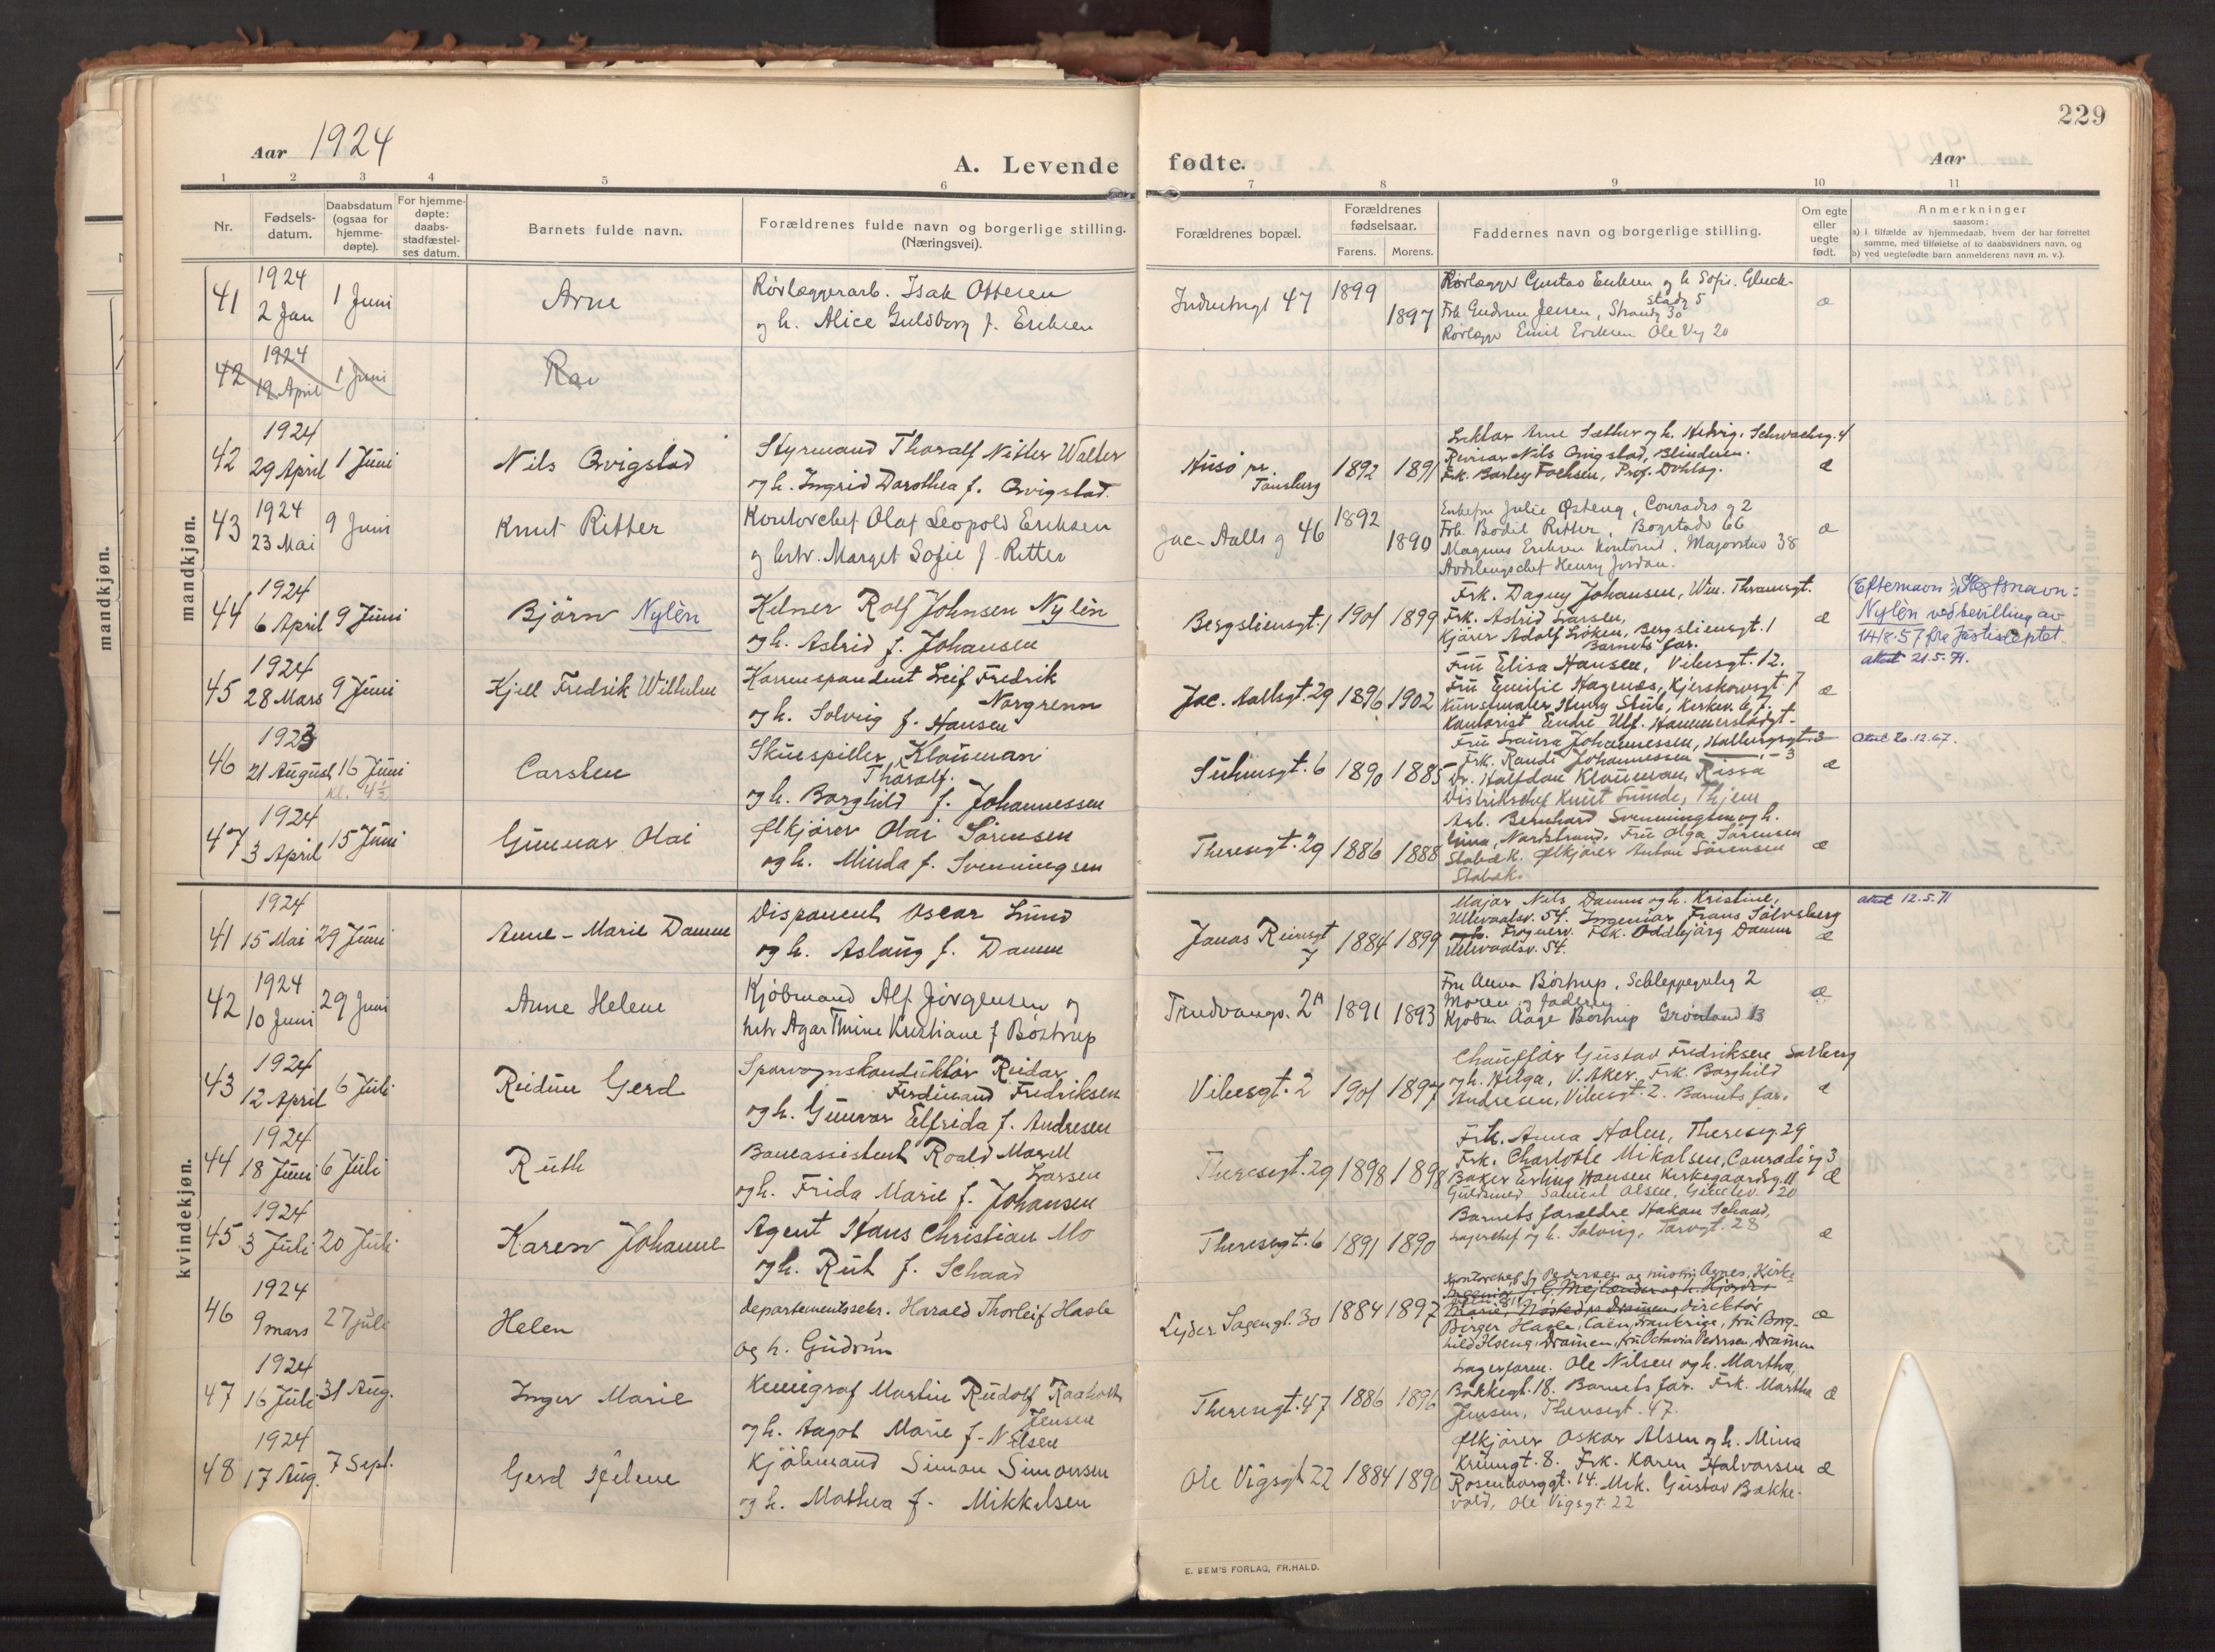 229
Aar 1924
A. Levende fødte.
Aar
1 2 3 4 5 6 7 8 9 10 11
Nr.
Fødsels-
datum.
Daabsdatum
(ogsaa for
hjemme-
døpte).
For hjemme-
døpte:
daabs-
stadfæstel-
ses datum.
Barnets fulde navn.
Forældrenes fulde navn og borgerlige stilling.
(Næringsvei).
Forældrenes bopæl.
Forældrenes
fødselsaar.
Farens. Morens.
Faddernes navn og borgerlige stilling.
Om egte
eller
uegte
født.
Anmerkninger
saasom:
a) i tilfælde av hjemmedaab, hvem der har forrettet
samme, med tilføielse af to daabsvidners navn, og
b) ved uegtefødte barn anmelderens navn m. v.).
mandkjøn.
mandkjøn.
41 1924
2 Jan 1 Juni
Arne
Rørlæggerarb. Isak Ottesen
og h. Alice Guldborg f. Eriksen
47
1899
1897
Rørlægger Gustav Eriksen og h. Sofie. Gluck-
stadg 5
Frk Gudrun Jensen, Strandg 30
Rørlægger Emil Eriksen Ole Vig 20
æ
42 1924
19 April 1 Juni
42 1924
29 April 1 Juni
Nils Qvigstad
Styrmand Tharalf Nitter Walter
og h. Ingrid Dorothea f. Qvigstad.
Husø pr.
Tønsberg
1892 1891
Lektor Arne Sæther og h. Hedvig, Schwachsg. 4
Revisor Nils Qvigstad, Blindern.
Prof. Dahlsg.
æ
43 1924
23 Mai 9 Juni
Knut Ritter
Kontorchef Olaf Leopold Eriksen
og hstr. Margit Sofie f. Ritter
Jac. Aalls g 46
1892
1890
Enkefru Julie Østeng, Conradis g 2
Frk. Bodil Ritter, Bogstadv 66
Magnus Eriksen Kontorist, Majorstuv 38
Avdelingschef Henry Jordan.
æ
44 1924
6 April 9 Juni
Björn Nylèn
Kelner Rolf Johnsen Nylèn
og h. Astrid f. Johansen
Bergsliensgt. 1
1901 1899
Frk. Dagny Johansen, Wm. Thranesgt.
Frk. Astrid Larsen,
Kjører Adolf Løken, Bergsliensgt. 1
Barnets far.
æ
Nylèn ved bevilling av
14/8.57 fra Justisdeptet.
attest 21.5.71.
45 1924
28 Mars 9 Juni
Kjell Fredrik Wilhelm
Korrespondent Leif Fredrik
Norgrenn
og h. Solveig f. Hansen
Jac. Aallsgt. 29 1896 1902
Fru Elisa Hansen, Vibesgt. 12.
Fru Emilie Hagenæs, Kjerskowsgt. 7
Kunstmaler Henry Stub, Kirkev. 67.
Kontorist Endre Ulf. Hammerstadgt.
æ
46 1923
21 August 16 Juni
kl. 4½
Carsten
Skuespiller Klouman
Tharalf.
og h. Borghild f. Johannessen
Suhmsgt. 6 1890 1885
Fru Laura Johannessen, Hallingsgt. 3
Frk. Randi Johannessen - 3
Dr. Halfdan Klouman, Rissa
Distriktschef Knut Sunde, Thjem
æ
attest 20.12.67.
47 1924
3 April 15 Juni
Gunnar Olai
Ølkjører Olai Sørensen
og h. Minda f. Svenningsen
Theresegt. 29 1886 1888
Arb. Bernhard Svenningsen og h.
Lina, Nordstrand. Fru Olga Sørensen
Stabæk. Ølkjører Anton Sørensen
Stabæk.
æ
kvindekjøn.
41 1924
15 Mai 29 Juni
Anne-Marie Damm
Disponent Oscar Lund
og h. Aslaug f. Damm
Jonas Reinsgt
7
1884 1899
Major Nils Damm og h. Kristine,
Ullevaalsv. 54. Ingeniør Frans Sølvsberg
Frognerv. Frk. Oddbjørg Damm
Ullevaalsv. 54.
æ
attest 12.5.71
42 1924
10 Juni 29 Juni
Anne Helene
Kjöbmand Alf Jörgensen og
hstr Agar Thrine Kristiane f Böstrup
Trudvangv. 2A 1891 1893
Fru Anna Börstrup, Schleppegrelsg 2
Moren og faderen
Kjöbm Aage Börstrup Grönland 13
æ
43 1924
12 April 6 Juli
Reidun Gerd
Sporvognskonduktør Reidar
Ferdinand Fredriksen
og h. Gunvor Elfrida f. Andresen
Vibesgt. 2 1901 1897
Chauffør Gustav Fredriksen
og h. Helga, V. Aker. Frk. Borghild
Andresen, Vibesgt. 2. Barnets far.
æ
44 1924
18 Juni 6 Juli
Ruth
Bankassistent Roald
Larsen
og h. Frida Marie f. Johansen
Theresegt. 29 1898 1898
Frk. Anna Holen, Theresesg. 29
Frk. Charlotte Mikalsen, Conradisg 3
Baker Erling Hansen Kirkegaardsg. 11
Guldsmed Samuel Olsen, 20
æ
45 1924
3 Juli 20 Juli
Karen Johanne
Agent Hans Christian Mo
og h. Rut f. Schaad
Theresegt. 6 1891 1890
Barnets forældre Hakon Schaad,
Lagerchef og h. Solveig, Torvgt. 28
æ
46 1924
9 mars 27 juli
Helen
departementssekr. Harald Thorleif Hasle
og h. Gudrun
Lyder Sagens gt. 30 1884 1897
direktør
Birger Hasle, Caen, Frankrige, fru Borg-
hild Hseng, Dramen, fru Octavia Pedersen, Dramen
æ
47 1924
16 Juli 31 Aug.
Inger Marie
Kemigraf Martin Rudolf Raaholt
Jensen
og h. Aagot Marie f. Nilsen
Theresegt. 47 1886 1896
Lagerform. Ole Nilsen og h. Martha,
Bakkegt. 18. Barnets far. Frk. Martha
Jensen, Theresegt. 47.
æ
48 1924
17 Aug. 7 Sept.
Gerd Helene
Kjöbmand Simon Simonsen
og h. Mathea f. Mikkelsen
Ole Vigsgt 22 1884 1890
Ølkjører Oskar Olsen og h. Mina
Krumgt. 8. Frk. Karen Halvorsen
Rosenborggt. 14. Mek. Gustav Bakke-
vold, Ole Vigsgt. 22
æ
E. SEM'S FORLAG, FR.HALD.